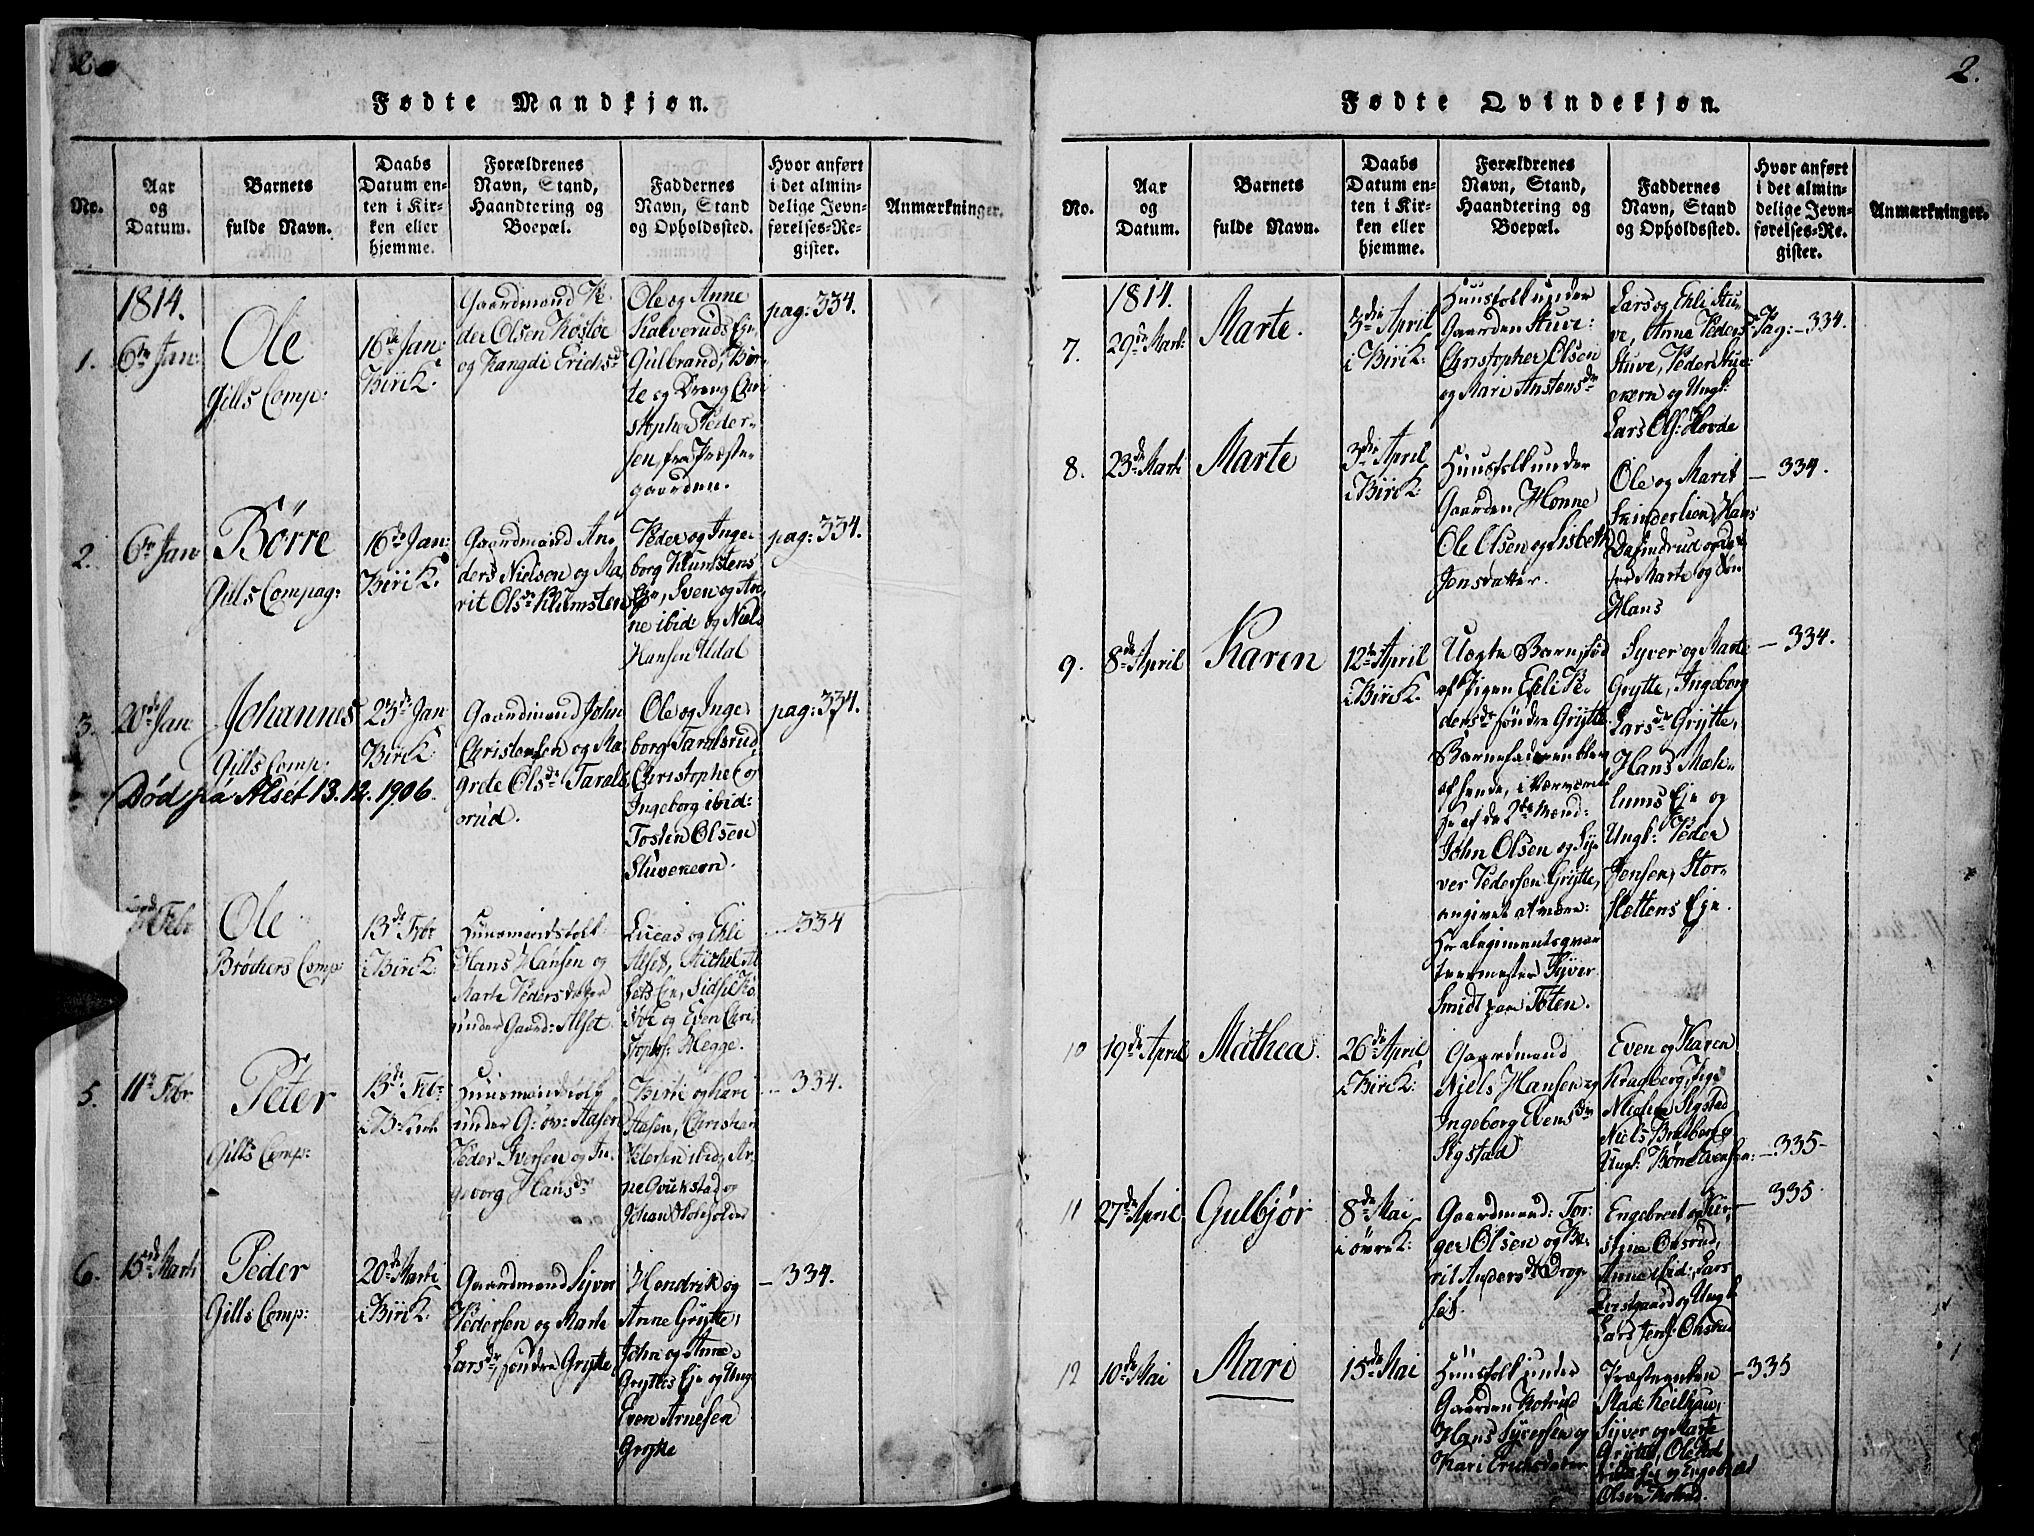 2.
Fødte Mandkjøn.
No.
Aar
og
Datum.
Barnets
fulde Navn.
Daabs
Datum en-
ten i Kir-
ken eller
hjemme.
Forældrenes
Navn, Stand,
Haandtering og
Boepæl.
Faddernes
Navn, Stand
og Opholdssted.
Hvor anført
i det almin-
delige Jevn-
førelses-Re-
gister.
Anmærkninger.
1.
1814.
6te Jan:
Ole
Gills Comp:
16de Jan:
Biri K:
Gaardmand Pe-
der Olsen Kostøe
og Rangdi Erichsd
Ole og Anne
Kalveruds Eje,
Gulbrand, Bør-
te og Dreng Chri
stopher Peder-
sen, fra Præste-
gaarden.
pag: 334.
2.
6te Jan
Børre
Gills Compag:
16de Jan:
Biri K:
Gaardmand An-
ders Nielsen og Ma-
rit Olsdr Klumsten
Peder og Inge-
borg Klumstens
Eje, Sven og An-
ne ibid: og Niels
Hansen Udal
pag: 334.
3.
20de Jan
Johannes
Gills Comp:
Død på Alset 13.12.1906.
23de Jan
Biri K:
Gaardmand John
Christensen og Ma-
grete Olsdr Tarals-
rud.
Ole og Inge-
borg Taralsrud,
Christopher og
Ingeborg ibid:
Tosten Olsen
Stuvenern.
pag: 334.
Febr
Ole
Brøchers Comp:
13de Febr
i Biri K:
Huusmandsfolk
Hans Hansen og
Marte Pedersdatter
under Gaard: Alset.
Lucas og Ehli
Alset, Michel Al-
sets Eje, Sidsil Ko-
støe og Even Chri-
stophs: Hegge.
334
5.
11te Febr
Peter
Gills Comp:
13de Febr
i B: Kirk
Huusmandsfolk
under G: øv: Aasen
Peder Iversen og In-
geborg Hansdr
Birte og Kari
Aasen, Christian
Petersen ibid, Ar-
ne Gvikstad og
Johan Stokholder
- 334.
6.
15de Marti
Peder
Gills Comp:
20de Marti
i Biri K:
Gaardmand Syver
Pedersen og Marte
Larsdr, søndre Grytte
Hendrik og
Anne Grytte,
John og Anne
Gryttes Eje og Ung
Even Arnesen
Grytte
- 334.
2.
Fødte Qvindekjøn.
No.
Aar
og
Datum.
Barnets
fulde Navn.
Daabs
Datum en-
ten i Kir-
ken eller
hjemme.
Forældrenes
Navn, Stand,
Haandtering og
Boepæl.
Faddernes
Navn, Stand
og Opholdssted.
Hvor anført
i det almin-
delige Jevn-
førelses-Re-
gister.
Anmærkninger.
7.
1814.
29de Mart:
Marte.
3die April
i Biri K:
Huusfolk under
Gaarden Stuve:
Christopher Olsen
og Mari Anstensdr
Lars og Ehli Stu-
ve, Anne Peders
Stuve, Peder Stuve-
nern og Ungk:
Lars Ols: Hovde
Pag: - 334.
8.
23de Marti
Marte
3die April
i Biri K:
Huusfolk under
Gaarden Honne
Ole Olsen og Lisbeth
Jensdatter.
Ole og Marit
Skinderlien, Hans
Marte og Søn
Hans
- 334.
9.
8de April
Karen
12te April
i Biri K:
Uægte Barn, fød
af Pigen Ehli Pe-
dersdr søndre Grytte.
Barnefaderen blev
af hende, i Nærværel-
se af de 2de Mænd:
John Olsen og Sy-
ver Pedersen Grytte,
angivet at være:
Hr Regimentsqvar
teermester Syver
Smidt paa Toten.
Syver og Marte
Grytte, Ingeborg
Larsdr Grytte,
Hans Mæh-
lums Eje og
Ungk: Peder
Jensen, Stor-
slettens Eje.
- 334.
10
19de April
Mathea.
26de April
i Biri K:
Gaardmand
Niels Hansen og
Ingeborg Evensdr
Sigstad
Even og Karen
Kragberg, Pige
Nielsen Sigstad
Niels Bratberg og
Ungk: Børre Evensen:
- 335 -
11
27de April
Gulbjør
8de Mai
i øvre K:
Gaardmand: Tor-
ger Olsen og Be-
rit Andersdr Drog-
set.
Engebret og Kir-
stine Onsrud,
Anne ibid:, Lars
Evistgaard og Ungk
Lars Jens: Onsrud
- 335
12
10de Mai
Mari
15de Mai
Huusfolk under
Gaarden Kotrud
Hans Syversen og
Kari Erichsdatter
Præsteenken
Mad: Keilhau,
Syver og Marte
Grytte, Ole Kot-
ruds Eje og Engebret
Olsen Kotrud.
- 335